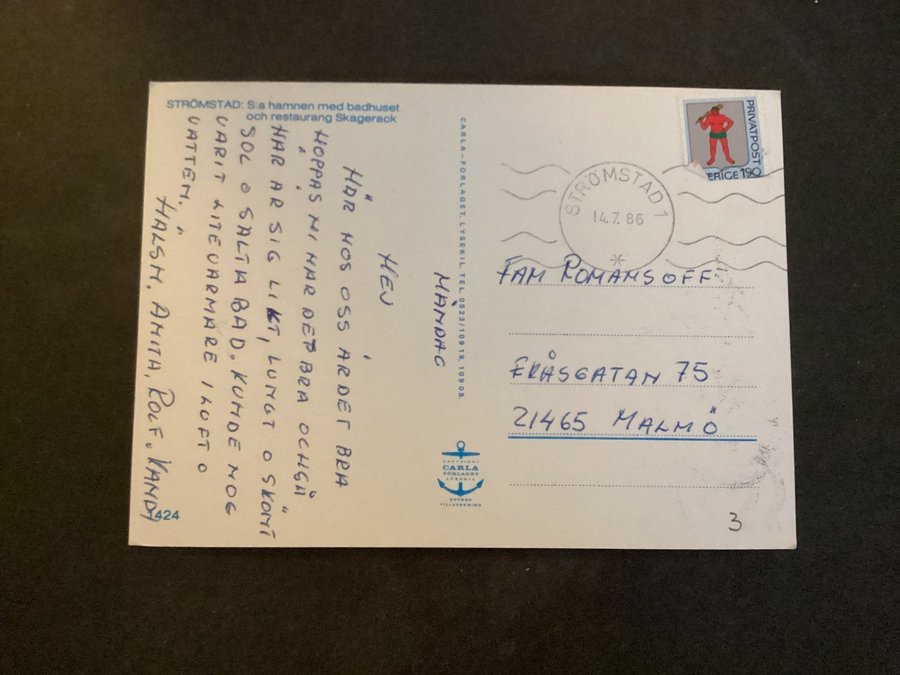 STRÖMSTAD: S:a hamnen med badhuset
och restaurang Skagerack
MÅNDAG
HEJ
HÄR HOS OSS ÄR DET BRA
HOPPAS NI HAR DET BRA OCKSÅ
HÄR ÄR SIG LIKT, LUNGT O SKÖNT
SOL O SALTA BAD. KUNDE NOG
VARIT LITE VARMARE I LUFT O
VATTEN.
HÄLSN. ANITA, ROLF,
424
CARLA-FÖRLAGET, LYSEKIL TEL. 0523/109 19, 109 09.
COPYRIGHT
CARLA
FÖRLAGET
LYSEKIL
SVENSK
TILLVERKNING
PRIVATPOST
ERIGE 190
STRÖMSTAD 1
14.7.86
FAM ROMANSOFF
ERÅSGATAN 75
21465 MALMÖ
3